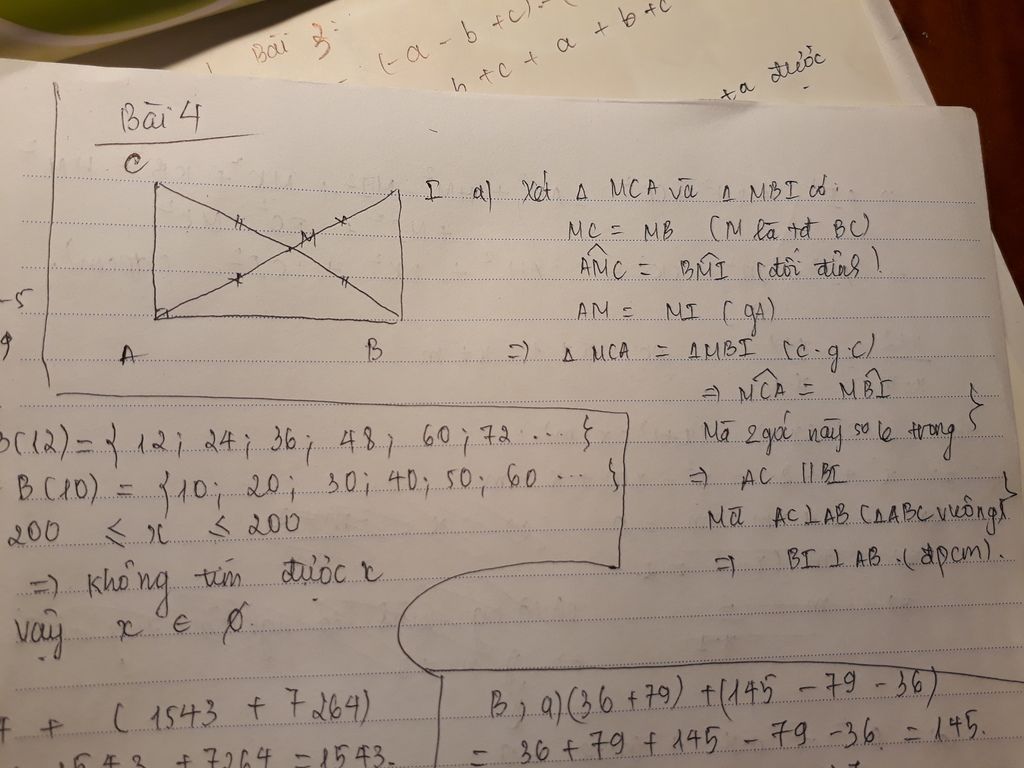 Bài 3:
(-a - b + c) - (
b + c + a + b + c
+ a được
Bài 4
C
I
M
A
B
a) Xét Δ MCA và Δ MBI có:
MC = MB (M là tđ BC)
AMC = BMI (đối đỉnh).
AM = MI (gA)
=> Δ MCA = ΔMBI (c.g.c)
=> MCA = MBI
Mà 2 góc này so le trong }
=> AC // BI
Mà AC⊥AB (ΔABC vuông }
=> BI ⊥ AB. (đpcm).
-5
9
B(12) = { 12; 24; 36; 48; 60; 72 ... }
B(10) = {10; 20; 30; 40; 50; 60 ... }
200 ≤ x ≤ 200
=> không tìm được x
vậy x ∈ ∅.
7 + (1543 + 7264)
1543 + 7264 = 1543.
B, a) (36 + 79) + (145 - 79 - 36)
= 36 + 79 + 145 - 79 - 36 = 145.